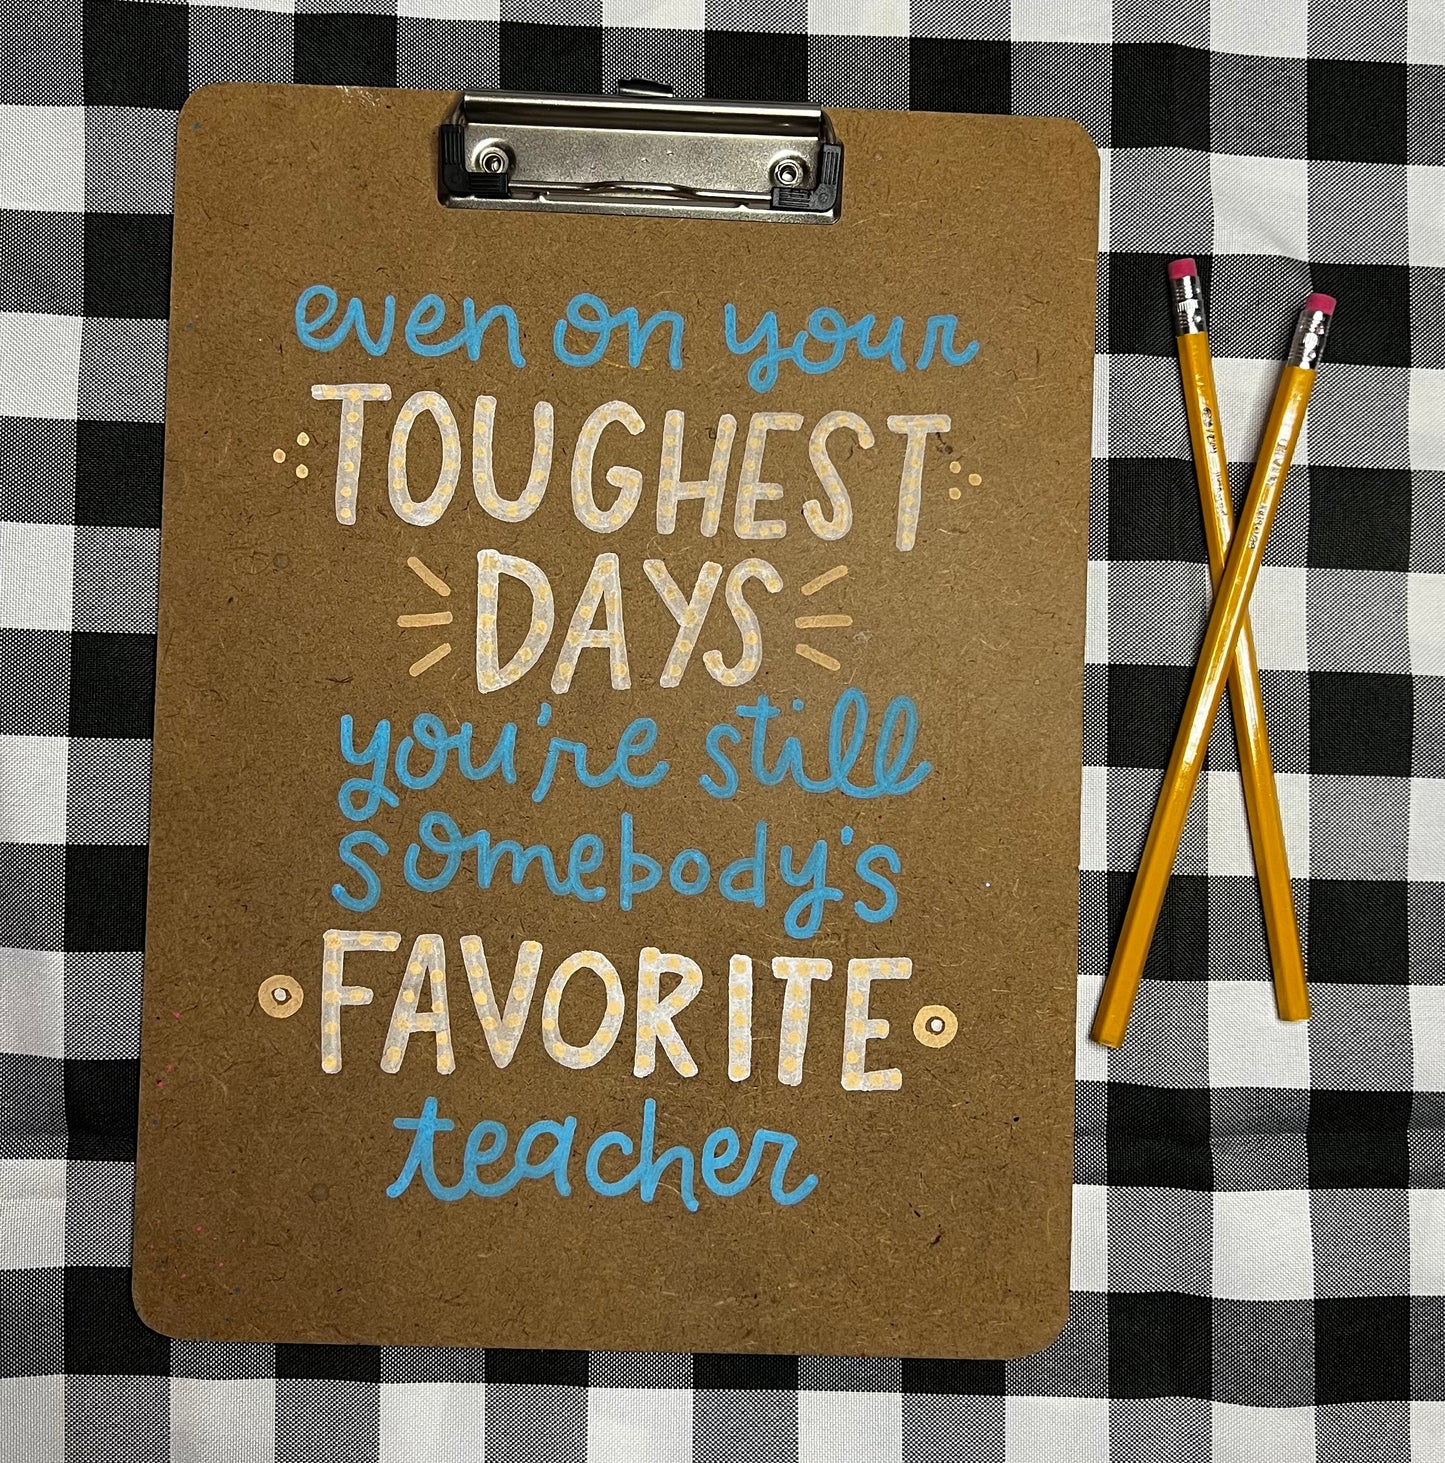 even on your
TOUGHEST
DAYS
you're still
somebody's
FAVORITE
teacher